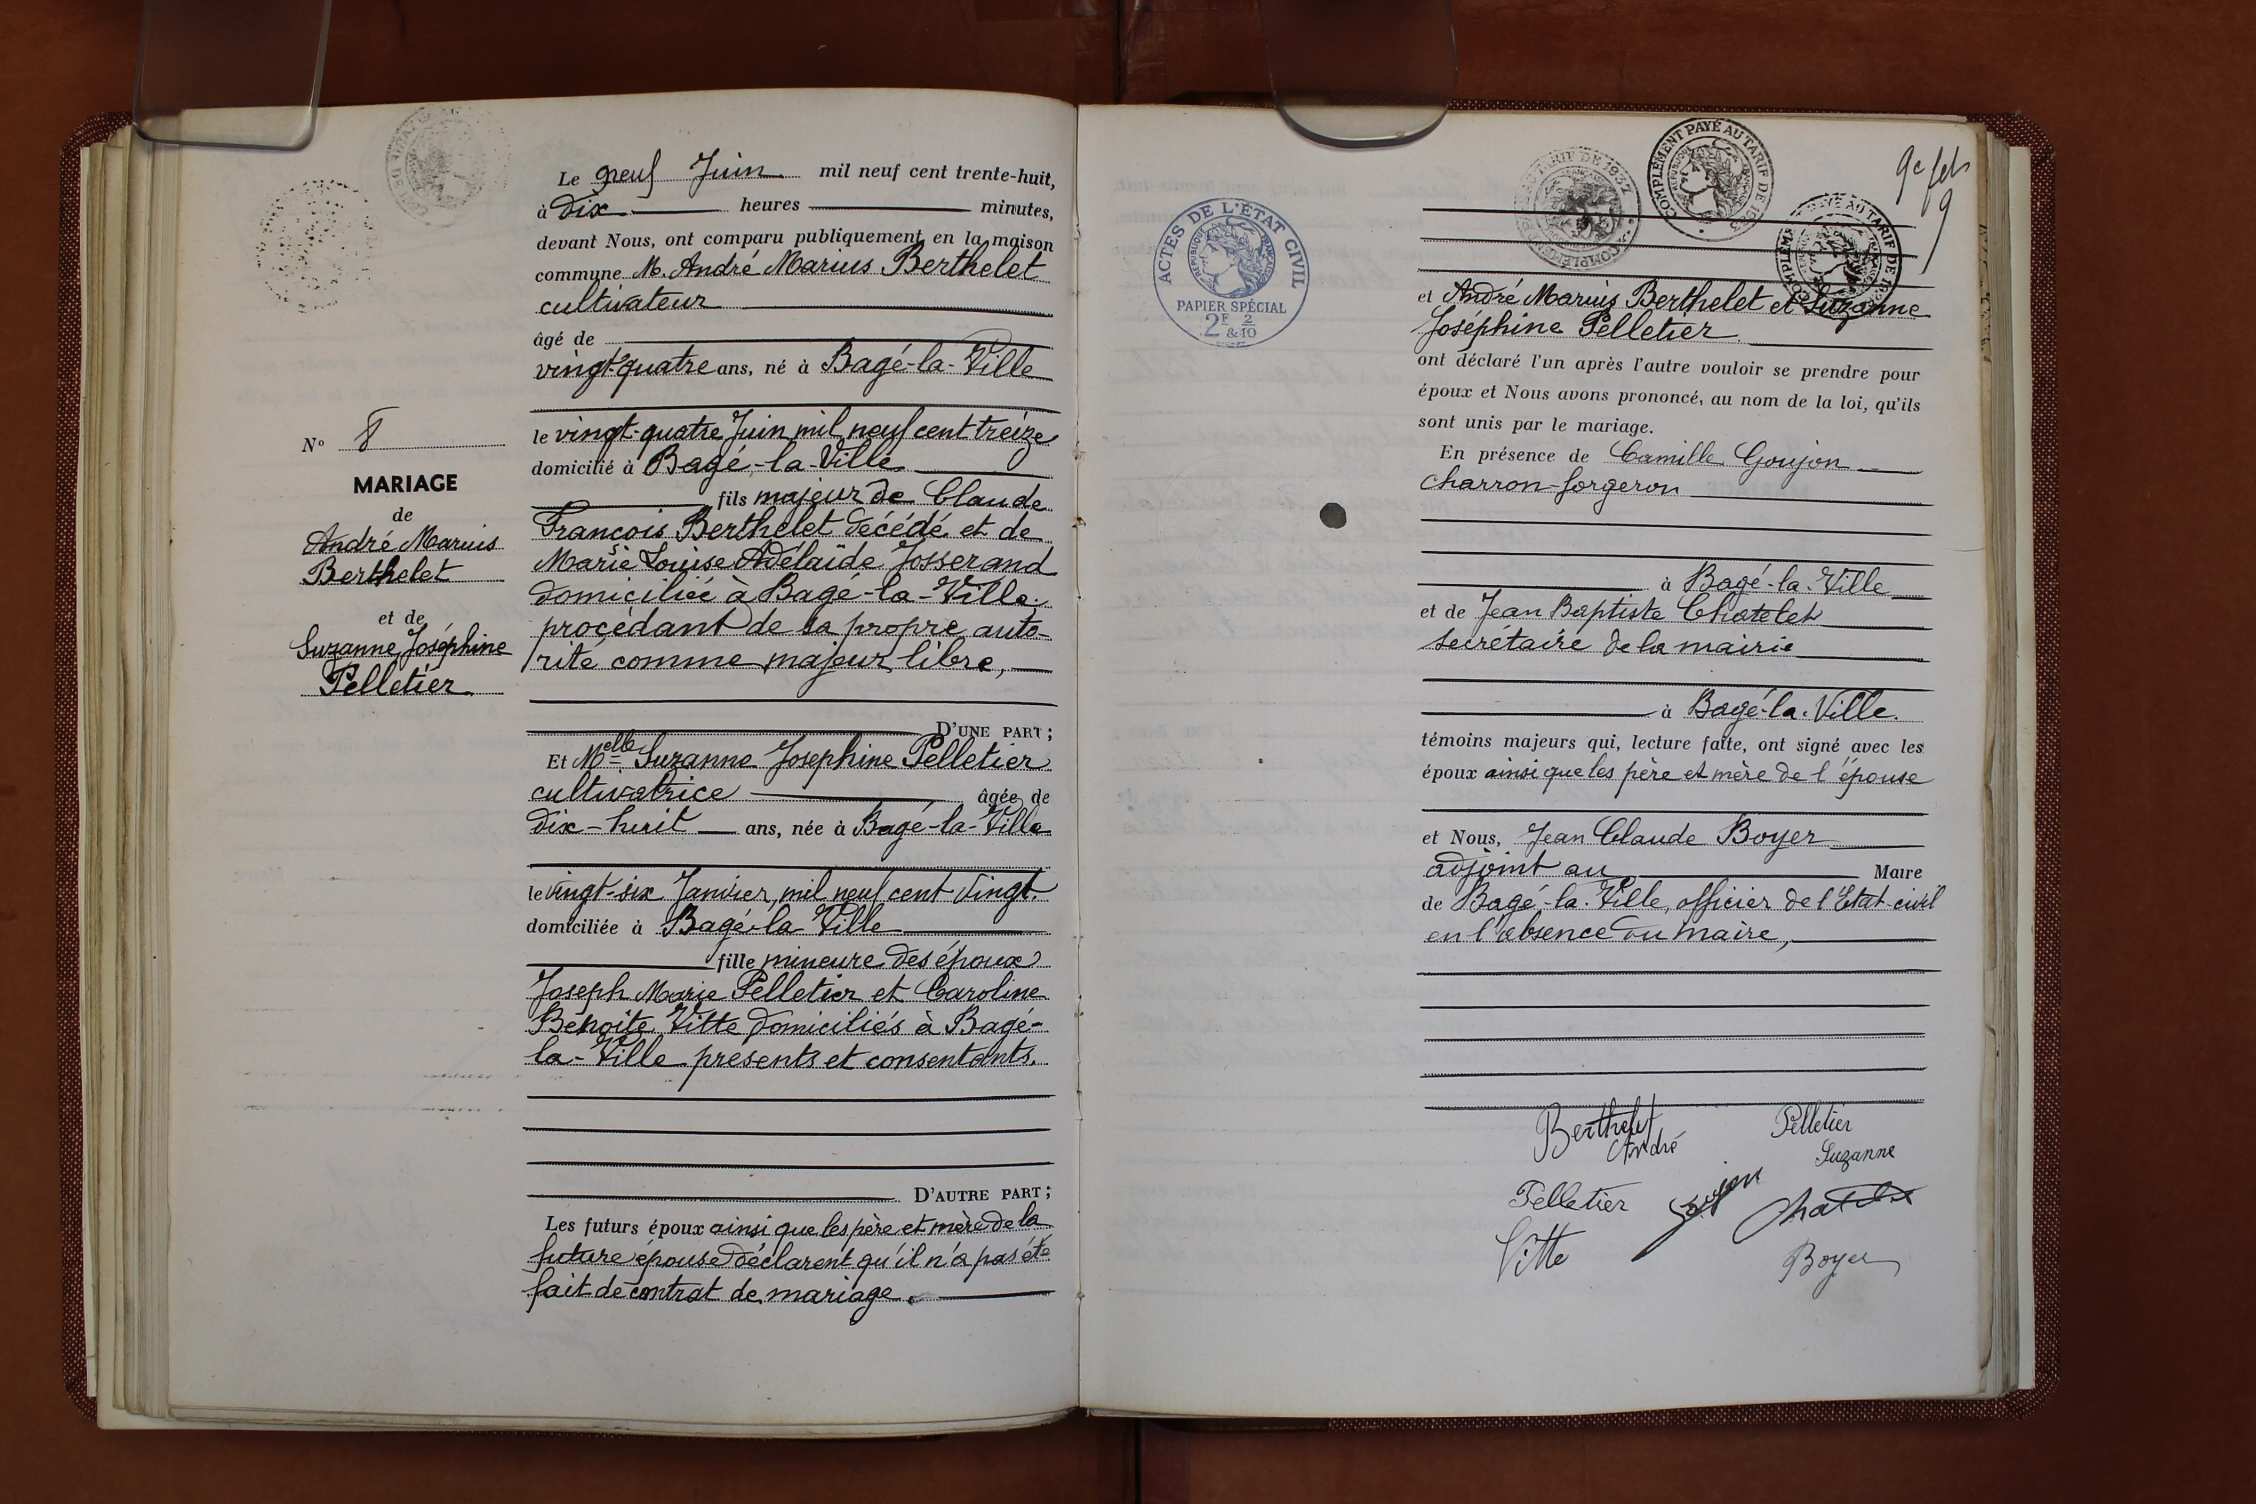 Le neuf Juin mil neuf cent trente-huit,
à dix heures minutes,
devant Nous, ont comparu publiquement en la maison
commune M. André Marius Berthelet
cultivateur
âgé de
vingt-quatre ans, né à Bagé-la-Ville
le vingt-quatre Juin mil neuf cent treize
domicilié à Bagé-la-Ville
fils majeur de Claude
François Berthelet décédé et de
Marie Louise Adélaïde Josserand
domiciliée à Bagé-la-Ville.
procédant de sa propre auto-
rité comme majeur libre,
D'UNE PART;
Et Melle Suzanne Josephine Pelletier
cultivatrice âgée de
dix-huit ans, née à Bagé-la-Ville
le vingt-six Janvier, mil neuf cent vingt.
domiciliée à Bagé-la Ville
fille mineure des époux
Joseph Marie Pelletier et Caroline
Benoite Vitte domiciliés à Bagé-
la-Ville présents et consentants.
D'AUTRE PART;
Les futurs époux ainsi que les père et mère de la
future épouse déclarent qu'il n'a pas été
fait de contrat de mariage.
No 8
MARIAGE
de
André Marius
Berthelet
et de
Suzanne Joséphine
Pelletier
ACTES DE L'ÉTAT CIVIL
RÉPUBLIQUE FRANÇAISE
PAPIER SPÉCIAL
2F & 2/10
COMPLÉMENT PAYÉ AU TARIF DE
9
et André Marius Berthelet et Suzanne
Joséphine Pelletier
ont déclaré l'un après l'autre vouloir se prendre pour
époux et Nous avons prononcé, au nom de la loi, qu'ils
sont unis par le mariage.
En présence de Camille Goujon
charron-forgeron
à Bagé-la-Ville
et de Jean Baptiste Chatelet
secrétaire de la mairie
à Bagé-la-Ville.
témoins majeurs qui, lecture faite, ont signé avec les
époux ainsi que les père et mère de l'épouse
et Nous, Jean Claude Boyer
adjoint au Maire
de Bagé-la-Ville, officier de l'Etat-civil
en l'absence du maire,
Berthelet Pelletier
André Suzanne
Pelletier Goujon Chatelet
Vitte Boyer